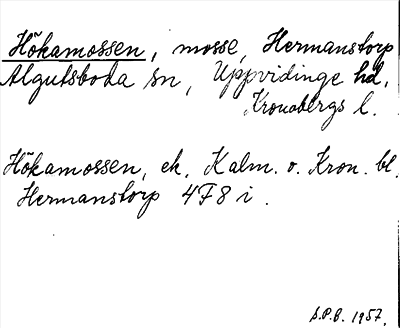 Hökamossen, mosse, Hermanstorp
Algutsboda sn, Uppvidinge hd,
Kronobergs l.
Hökamossen, ek. Kalm. o. Kron. bl.
Hermanstorp 4F8 i.
S.P.B. 1957.